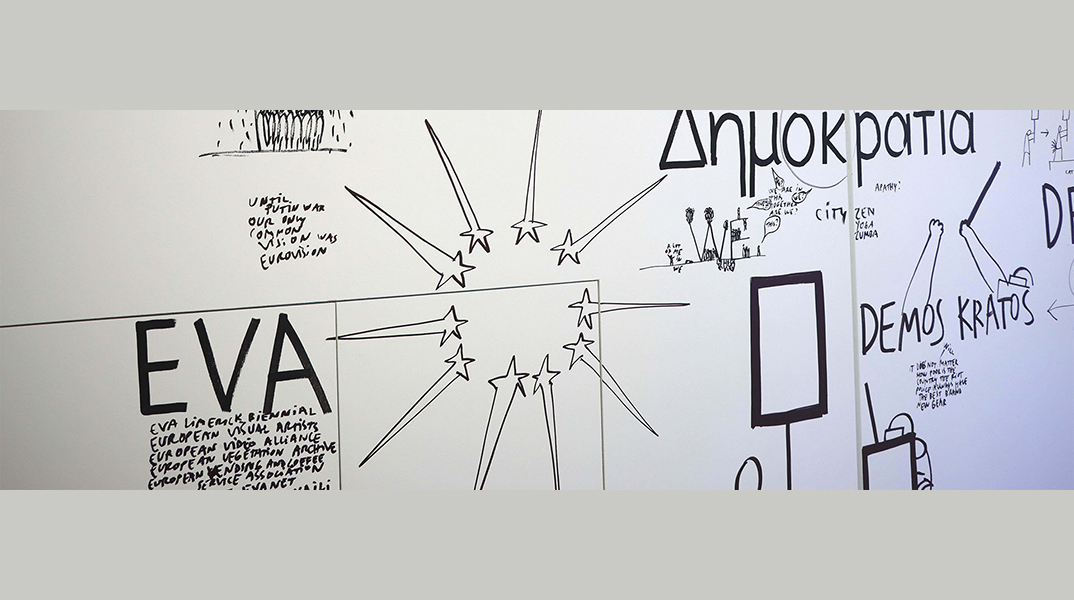 UNTIL
PUTIN WAR
OUR ONLY
COMMON
VISION WAS
EUROVISION
EVA
EVA LIMERICK BIENNIAL
EUROPEAN VISUAL ARTISTS
EUROPEAN VIDEO ALLIANCE
EUROPEAN VEGETATION ARCHIVE
EUROPEAN VENDING AND COFFEE
SERVICE ASSOCIATION
EVANET
Δημοκρατία
WE ARE IN
THIS
TOGETHER
ARE WE?
YES!
A LOT
OF ME
IS
WE
APATHY?
CITY ZEN
YOGA
ZUMBA
DEMOS KRATOS
IT DOES NOT MATTER
HOW POOR IS THE
COUNTRY THE RIOT
POLICE ALWAYS HAVE
THE BEST BRAND
NEW GEAR